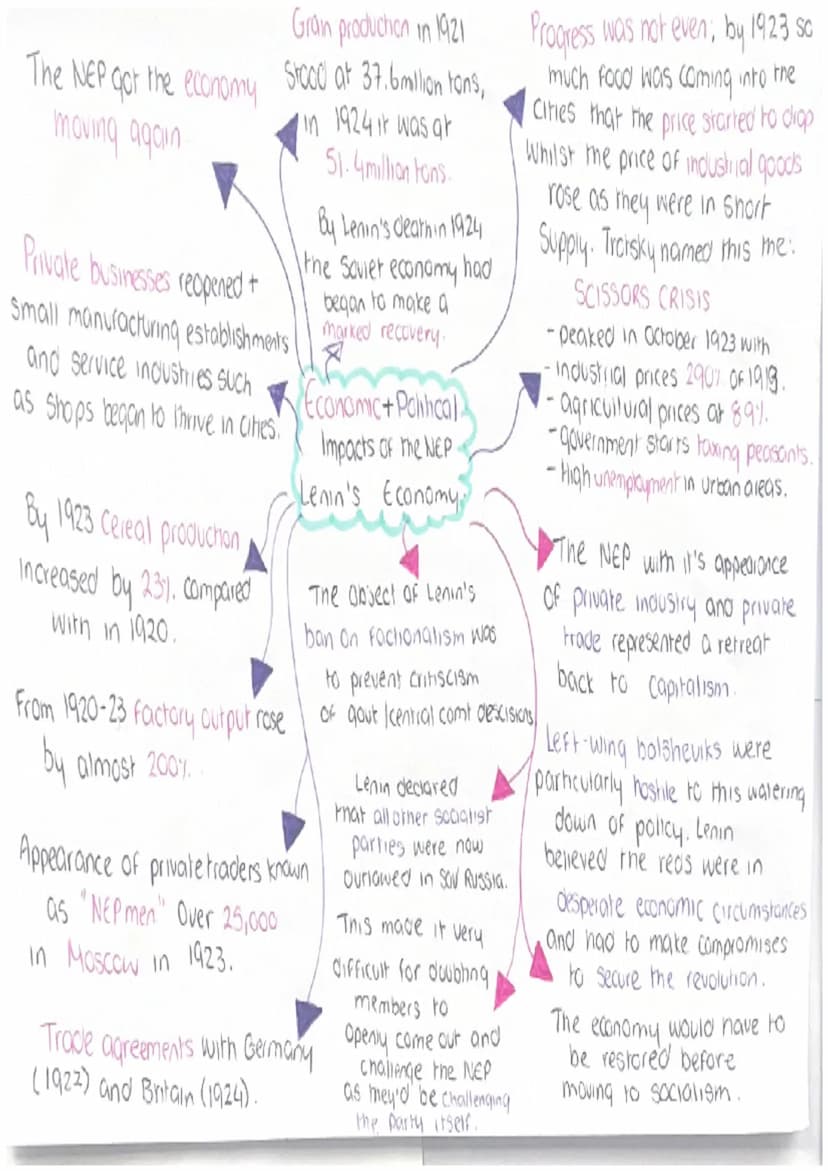 The NEP got the economy
moving again
Private businesses reopened +
small manufacturing establishments
and service industries such
as shops began to thrive in cities.
By 1923 cereal production
increased by 23% compared
with in 1920.
From 1920-23 factory output rose
by almost 200%.
Appearance of private traders known
as "NEPmen" Over 25,000
in Moscow in 1923.
Trade agreements with Germany
(1922) and Britain (1924).
Grain production in 1921
stood at 37.6million tons,
in 1924 it was at
51.4million tons.
By Lenin's death in 1924
the Soviet economy had
began to make a
marked recovery.
Economic + Political
Impacts of the NEP
Lenin's Economy.
The object of Lenin's
ban on factionalism was
to prevent critiscism
of govt /central comt descisions
Lenin declared
that all other socialist
parties were now
outlawed in Sov Russia.
This made it very
difficult for doubting
members to
openly come out and
challenge the NEP
as they'd be challenging
the party itself.
Progress was not even; by 1923 so
much food was coming into the
cities that the price started to drop
whilst the price of industrial goods
rose as they were in short
supply. Trotsky named this the:
SCISSORS CRISIS
- peaked in October 1923 with
- industrial prices 290% of 1913.
- agricultural prices at 89%.
- government starts taxing peasants.
- High unemployment in urban areas.
The NEP with it's appearance
of private industry and private
trade represented a retreat
back to capitalism.
Left-wing bolsheviks were
particularly hostile to this watering
down of policy. Lenin
believed the reds were in
desperate economic circumstances
and had to make compromises
to secure the revolution.
The economy would have to
be restored before
moving to socialism.